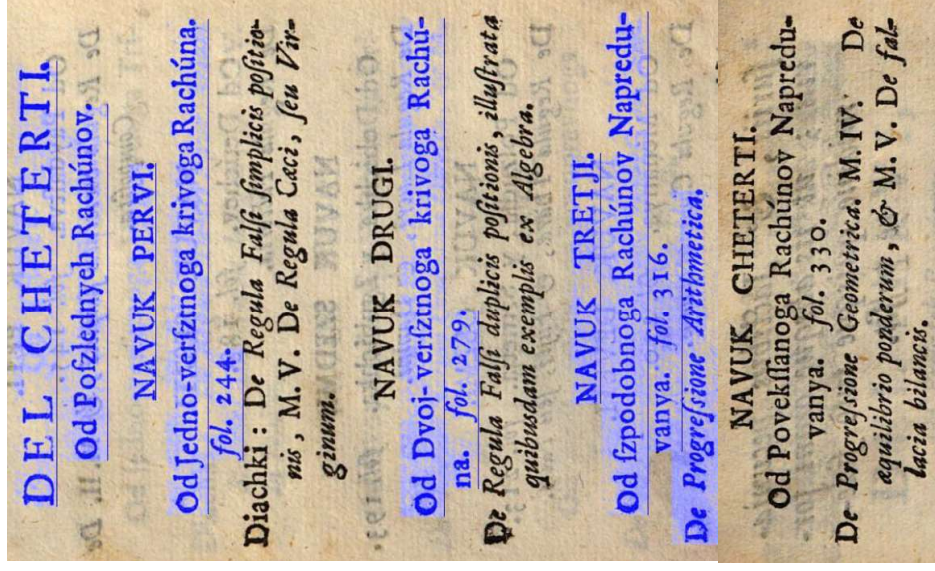 DEL CHETERTI.
Od Poſzlednych Rachúnov.
NAVUK PERVI.
Od Jedno-verſztnoga krivoga Rachúna.
fol. 244.
Diachki : De Regula Falſi ſimplicis poſitio-
nis, M. V. De Regula Cæci, ſeu Vir-
ginum.
NAVUK DRUGI.
Od Dvoj-verſztnoga krivoga Rachú-
na. fol. 279.
De Regula Falſi duplicis poſitionis, illuſtrata
quibusdam exemplis ex Algebra.
NAVUK TRETJI.
Od ſzpodobnoga Rachúnov Napredu-
vanya. fol. 316.
De Progreſsione Arithmetica.
NAVUK CHETERTI.
Od Povekſſanoga Rachúnov Napredu-
vanya. fol. 330.
De Progreſsione Geometrica. M. IV. De
aequilibrio ponderum, & M. V. De fal-
lacia bilancis.